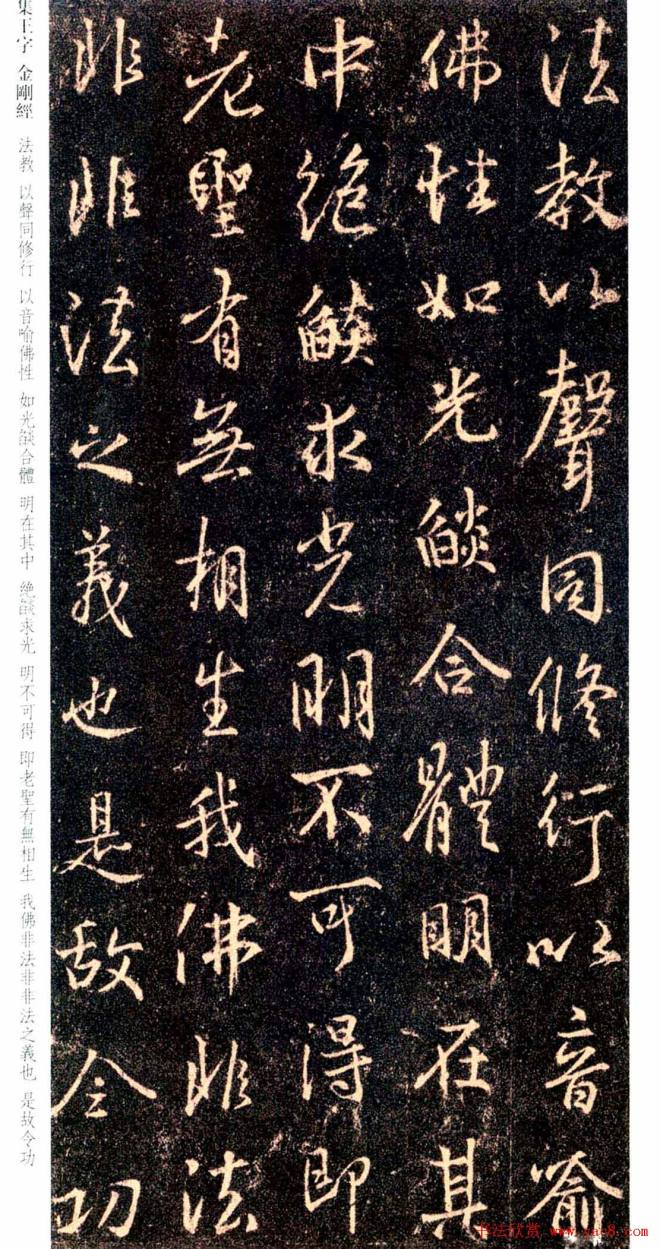 法教以聲同修行以音喻
佛性如光燄合體明在其
中絕燄求光明不可得即
老聖有無相生我佛非法
非非法之義也是故令功
集王字 金剛經 法教 以聲同修行 以音喻佛性 如光燄合體 明在其中 絕燄求光 明不可得 即老聖有無相生 我佛非法非非法之義也 是故令功
书法欣赏 www.yac8.com